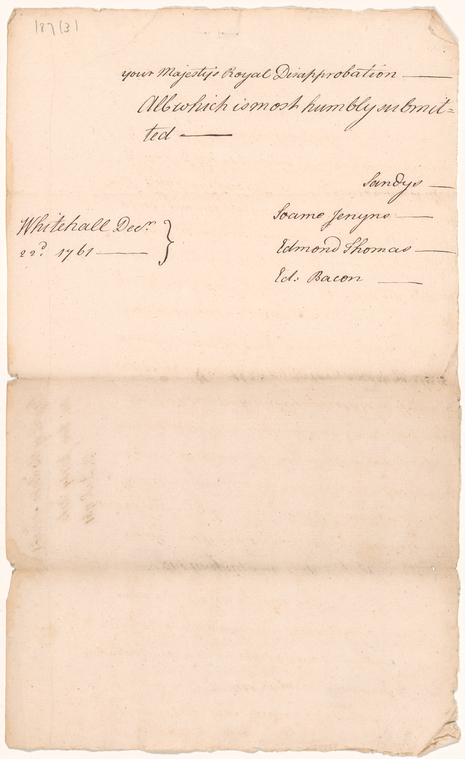 187 (3)
your Majesty's Royal Disapprobation —
All which is most humbly submit=
ted —
Sandys —
Soame Jenyns —
Edmond Thomas —
Ed: Bacon —
Whitehall Decr.
22d. 1761 —